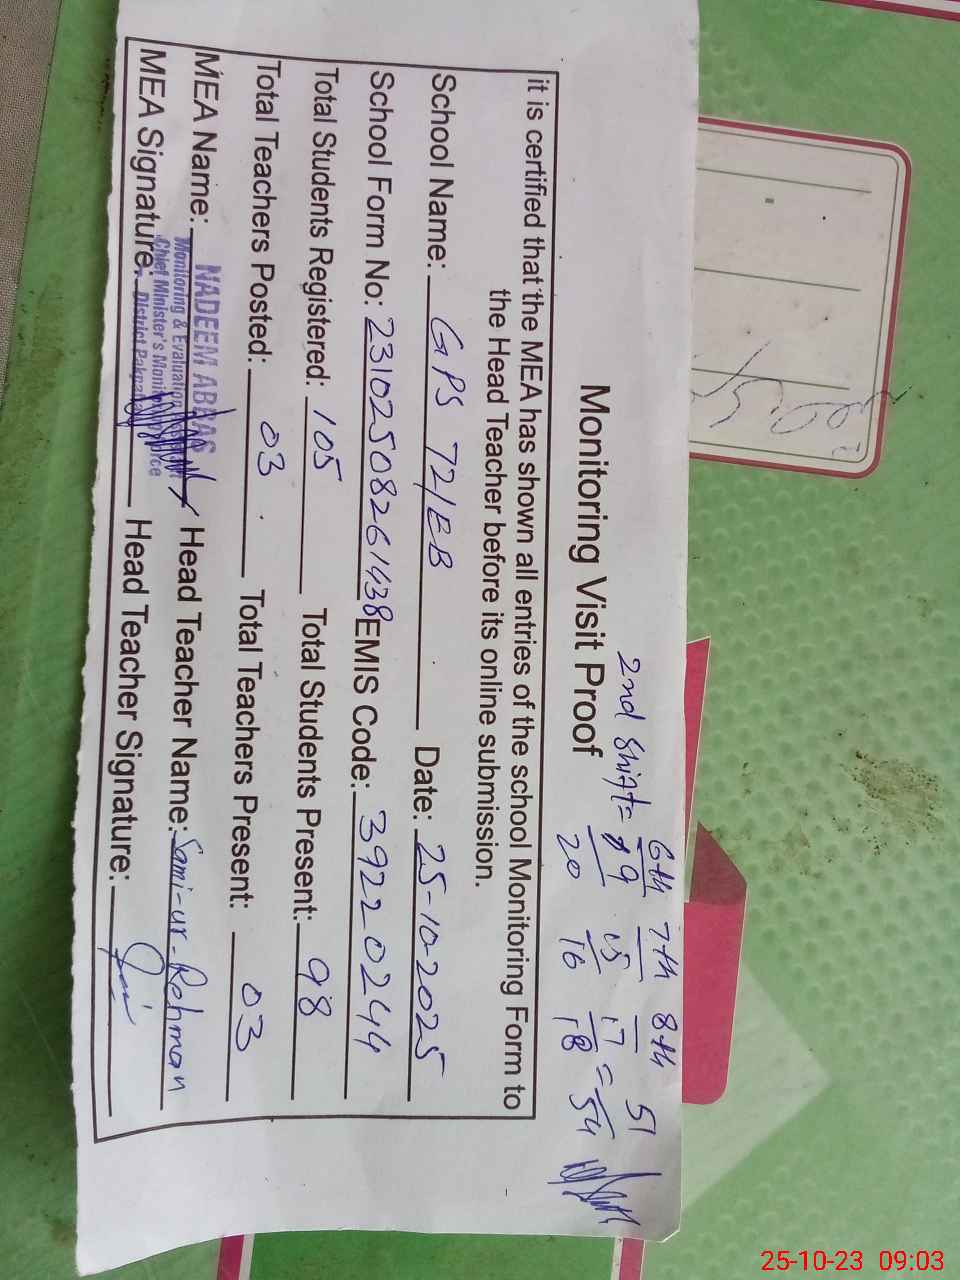 6th 7th 8th
2nd shift = 19/20 15/16 17/18 = 51/54
Monitoring Visit Proof
it is certified that the MEA has shown all entries of the school Monitoring Form to
the Head Teacher before its online submission.
School Name: GPS 72/EB Date: 25-10-2025
School Form No: 23102508261438 EMIS Code: 39220244
Total Students Registered: 105 Total Students Present: 98
Total Teachers Posted: 03 Total Teachers Present: 03
MEA Name: NADEEM ABBAS Head Teacher Name: Sami-ur-Rehman
Monitoring & Evaluation
MEA Signature: Head Teacher Signature:
Chief Minister's Monitoring Force
District Pakpattan
25-10-23 09:03